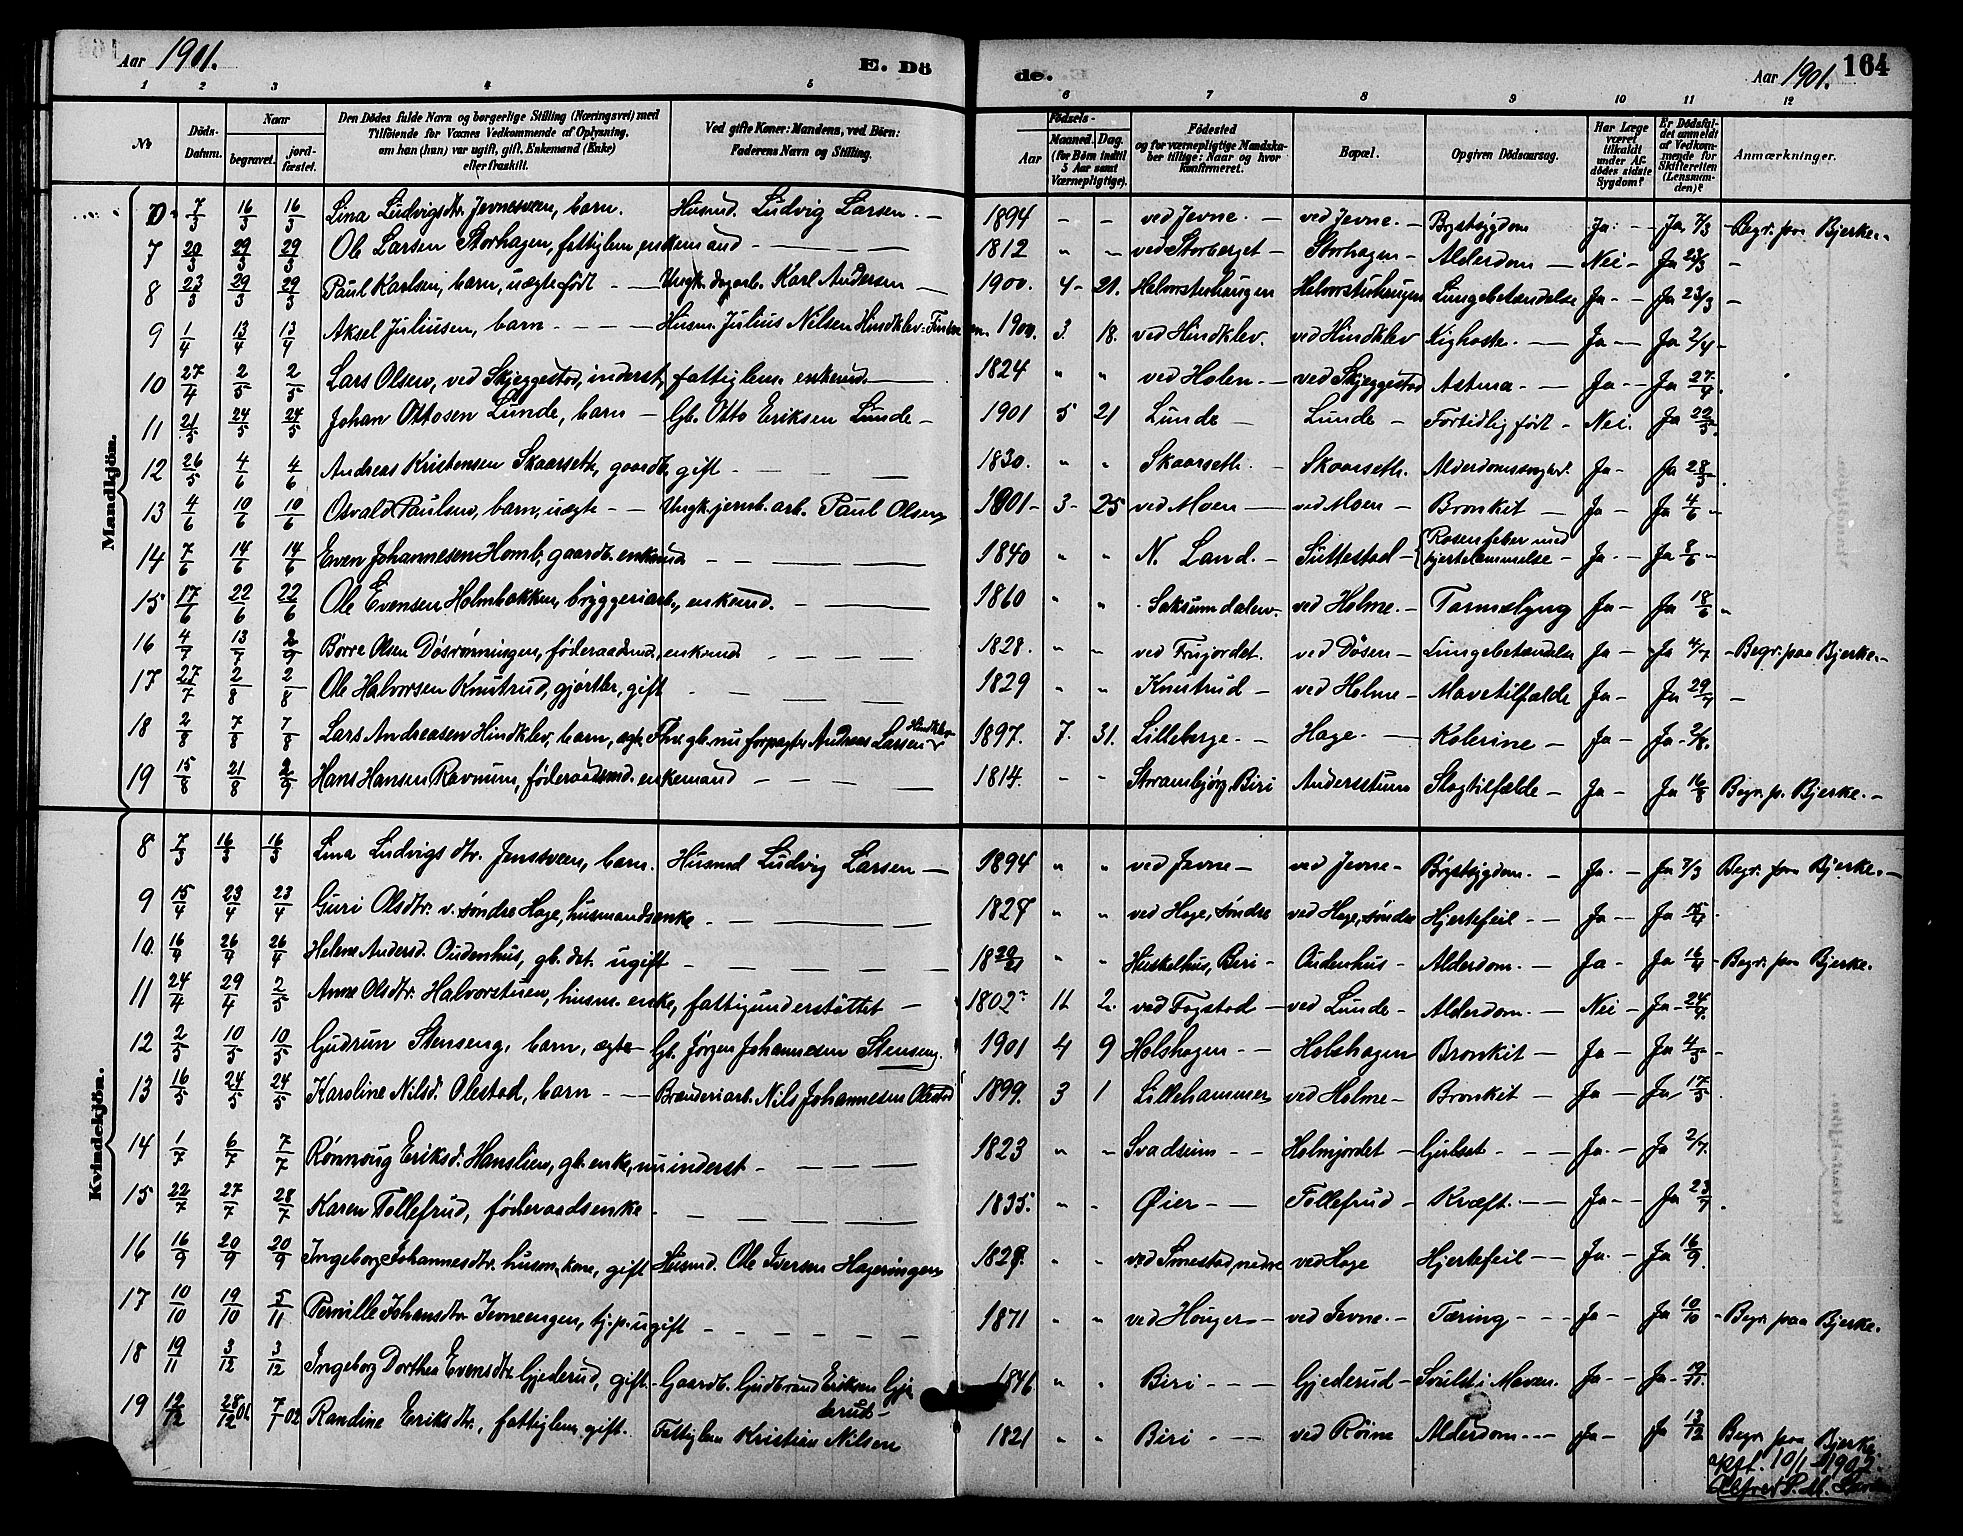 Aar 1901.
E. Döde.
Aar 1901. 164
1 2 3 4 5 6 7 8 9 10 11 12
No
Döds-Datum.
Naar
begravet.
jordfæstet.
Den Dödes fulde Navn og borgerlige Stilling (Næringsvei) med
Tilföiende for Voxnes Vedkommende af Oplysning,
om han (hun) var ugift, gift, Enkemand (Enke)
eller fraskilt.
Ved gifte Koner: Mandens, ved Börn:
Faderens Navn og Stilling.
Födsels-
Aar
Maaned. Dag.
(for Börn indtil
5 Aar samt
Værnepligtige).
Födested
og for værnepligtige Mandska-
ber tillige: Naar og hvor
konfirmeret.
Bopæl.
Opgiven Dödsaarsag.
Har Læge
været
tilkaldt
under Af-
dödes sidste
Sygdom?
Er Dödsfal-
det anmeldt
af Vedkom-
mende for
Skifteretten
(Lensman-
den)?
Anmærkninger.
Mandkjön.
7/3 16/3 16/3 Lina Ludvigsdtr. Jevnesveen, barn. Husmd. Ludvig Larsen. 1894 - - ved Jevne. ved Jevne. Brystsygdom Ja. Ja 7/3 Begr. paa Bjerke.
7 20/3 29/3 29/3 Ole Larsen Storhagen, fattiglem, enkemand 1812 " " ved Storberget Storhagen Alderdom Nei Ja 23/3
8 23/3 29/3 29/3 Paul Karlsen, barn, uægte født Ungk. dagarb. Karl Andersen 1900. 4 21. Halvorsterhaugen Halvorsterhaugen Lungebetændelse Ja Ja 23/3
9 1/4 13/4 13/4 Aksel Juliusen, barn Husm. Julius Nilsen Hindklev 1900. 3. 18. ved Hindklev. ved Hindklev Kighoste. Ja Ja 2/4
10 27/4 2/5 2/5 Lars Olsen, ved Skjeggestad, inderst, fattiglem. enkemd. 1824 " " ved Holen ved Skjeggestad Astma Ja Ja 27/4
11 21/5 24/5 24/5 Johan Ottosen Lunde, barn Gb. Otto Eriksen Lunde 1901 5 21 Lunde Lunde Fortidlig født Nei. Ja 22/5
12 26/5 4/6 4/6 Andreas Kristensen Skaarseth, gaardb. gift 1830. " " Skaarseth. Skaarseth. Alderdomssvaghed. Ja Ja 28/5
13 4/6 10/6 10/6 Osvald Paulsen, barn, uægte Ungk. jernb. arb. Paul Olsen 1901 3 25 ved Moen ved Moen Bronkit Ja Ja 4/6
14 7/6 14/6 14/6 Even Johannesen Homb, gaardb. enkemd 1840 " " N. Land. Suttestad Rosenfeber med hjertelammelse Ja Ja 8/6
15 17/6 22/6 22/6 Ole Evensen Holmbakken, bryggeriarb., enkemd. 1860 " " Saksumdalen. ved Holme. Tarmslyng Ja Ja 18/6
16 4/7 13/7 2/9 Børre Olsen Døsrønningen, føderaadsmd., enkemd 1828. " " ved Frujordet. ved Døsen Lungebetændelse Ja Ja 4/7 Begr. paa Bjerke.
17 27/7 2/8 2/8 Ole Halvorsen Knutrud, gjørtler, gift 1829 " " Knutrud ved Holme Mavetilfælde Ja Ja 29/7
18 2/8 7/8 7/8 Lars Andreasen Hindklev, barn, ægte Fhv. gb. nu forpagter Andreas Larsen Hindklev 1897. 7. 31. Lilleberge. Hage. Kolerine Ja Ja 2/8.
19 15/8 21/8 2/9 Hans Hansen Ravnum, føderaadsmd. enkemand 1814. " " Strømsbjørg, Biri Andersstuen Slagtilfælde Ja Ja 16/8 Begr. p. Bjerke.
Kvindekjön.
8 7/3 16/3 16/3 Lina Ludvigsdtr. Jenssveen, barn. Husmd Ludvig Larsen 1894 " " ved Jevne ved Jevne Brystsygdom. Ja. Ja 7/3 Begr. paa Bjerke.
9 15/4 23/4 23/4 Guri Olsdtr. v. søndre Hage, husmandsenke 1827 " " ved Hage, søndre ved Hage, søndre Hjertefeil Ja Ja 15/4
10. 16/4 26/4 26/4 Helene Andersd. Oudenhus, gb. dat. ugift 1820/21 " " Huskelhus, Biri Oudenhus Alderdom. Ja Ja 16/4 Begr. paa Bjerke.
11 24/4 29/4 2/5 Anne Olsdtr. Halvorstuen, husm. enke, fattigunderstøttet 1802 11 2. ved Fogstad ved Lunde Alderdom. Nei Ja 24/4
12 2/5 10/5 10/5 Gudrun Stenseng, barn, ægte Gb. Jørgen Johannesen Stenseng. 1901 4 9 Holshagen Holshagen Bronkit Ja Ja 4/5
13 16/5 24/5 24/5 Karoline Nilsd. Olestad, barn Brænderiarb. Nils Johannesen Olestad 1899. 3 1 Lillehammer ved Holme Bronkit Ja Ja 17/5
14 1/7 6/7 7/7 Rønnoug Eriksd. Hanslien, gb. enke, nu inderst 1823 " " Svadsum Holmjordet Gulsot Ja. Ja 2/7.
15 22/7 27/7 28/7 Karen Tollefrud, føderaadsenke 1835. " " Øier Tollefrud Kræft. Ja Ja 23/7
16 16/9 20/9 20/9 Ingeborg Johannesdtr. husm. kone, gift Husmd. Ole Iversen Hageringen 1829. " " ved Smestad, nedre ved Hage Hjertefeil Ja. Ja 16/9
17 10/10 19/10 5/11 Pernille Johansdtr Jevneengen, tj. p. ugift 1871 " " ved Houger ved Jevne. Tæring Ja Ja 10/10 Begr. paa Bjerke.
18 19/11 3/12 3/12 Ingeborg Dorthea Evensdtr. Gjederud, gift. Gaardb. Gudbrand Eriksen Gjederud 1846 " " Biri Gjederud Svulst i Maven. Ja Ja 19/11.
19 12/12 28/12 01 7/1 02 Randine Eriksdtr., fattiglem, gift. Fattiglem Kristian Nilsen 1821 " " Biri ved Røine Alderdom Ja Ja 13/12 Begr. paa Bjerke
Rft. 10/1 1902.